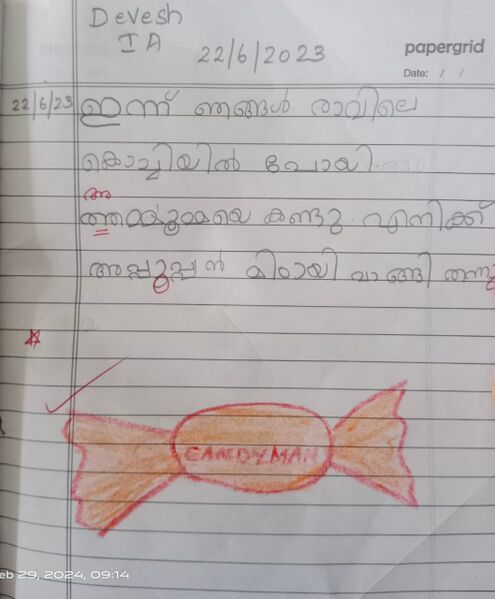 Devesh
I A
22/6/2023
papergrid
Date: / /
22/6/23 ഇന്ന് ഞങ്ങൾ രാവിലെ
കൊച്ചിയിൽ പോയി.
അ
അമ്മുമ്മയെ കണ്ടു. എനിക്ക്
അപ്പുപ്പൻ മിഠായി വാങ്ങി തന്നു
CANDYMAN
eb 29, 2024, 09:14